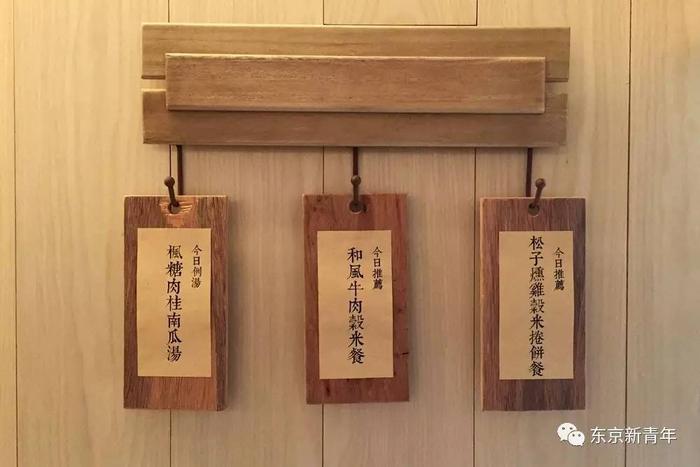 今日例湯
楓糖肉桂南瓜湯
今日推薦
和風牛肉穀米餐
今日推薦
松子燻雞穀米捲餅餐
东京新青年